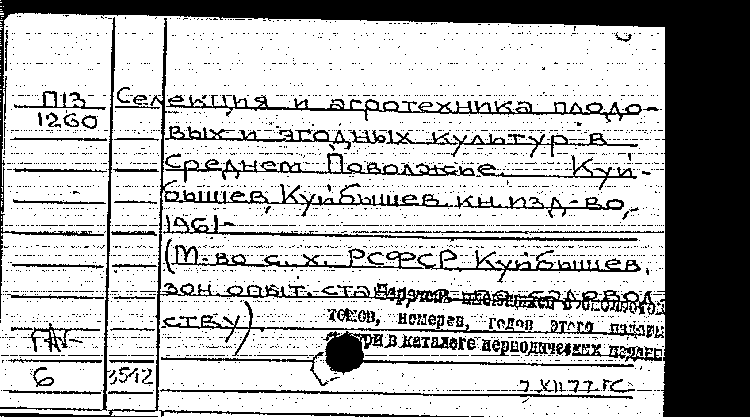 П13
1260
Селекция и агротехника плодо-
вых и ягодных культур в
Среднем Поволжье. Куй-
бышев, Куйбышев. кн. изд-во,
1961-
(М-во с. х. РСФСР. Куйбышев.
зон. опыт. станция по садовод
ству).
Перечень имеющихся в библиотеке
томов, номеров, годов этого издания
смотри в каталоге периодических изданий
6 3542
7 XII 77 ГС